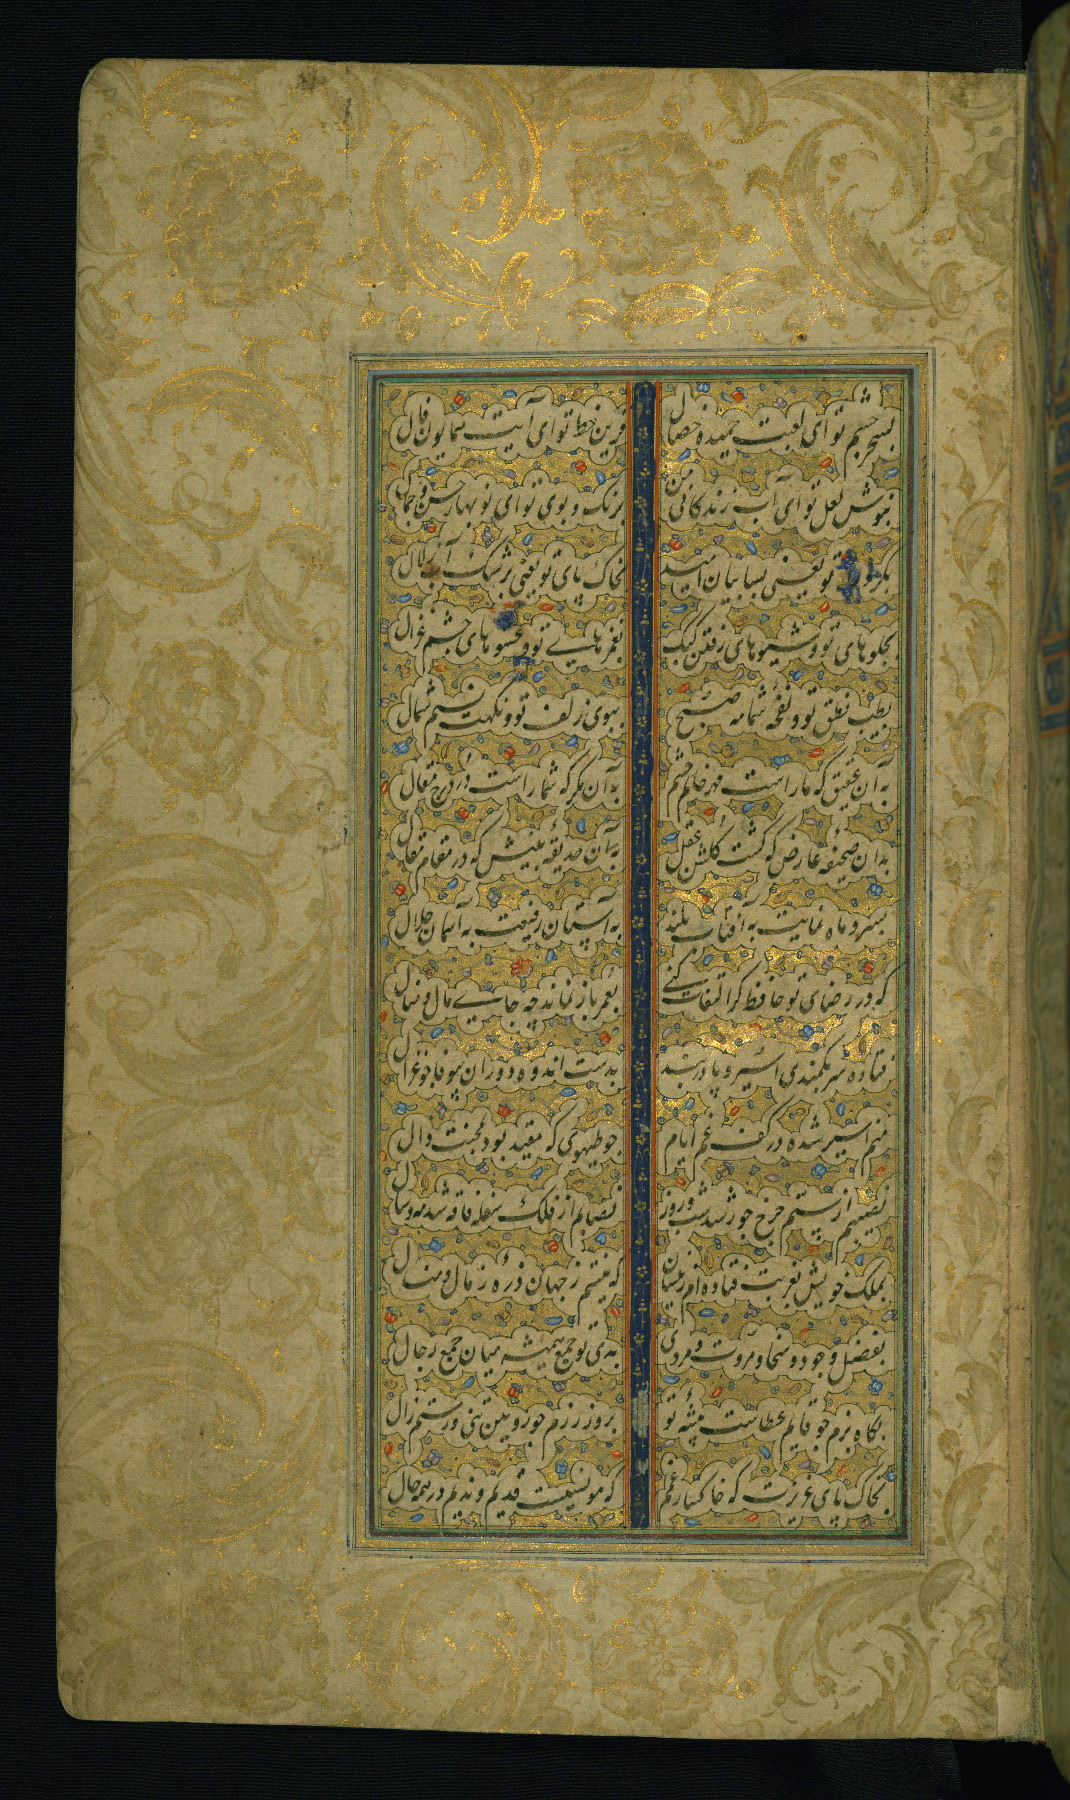 بسحر چشم تو ای لعبت حمیده خصال
برین خط تو ای آیت همایون فال
بنوش لعل تو ای آب زندگانی من
برنک و بوی تو ای نو بهار حسن و جمال
بکرد تو یعنی بسایبان امید
بخاک پای تو یعنی برشک آب زلال
بجلوهای تو و شیوهای رفتن کبک
بغمزهای تو و عشوهای چشم غزال
بطیب نطق تو و نفحهٔ شمامه صبح
ببوی زلف تو و نکهت نسیم شمال
به آن عقیق که ما راست مهر خاتم چشم
به آن گهر که شما راست در درج مقال
بدان صحیفه عارض که گشت گلشن عقل
به آن حدیقه بینش که در مقام مقال
بسرو ماه نمایت به آفتاب بلند
به آستان رفیعت به آسمان جلال
که در رضای تو حافظ گر التفات کنی
بعمر باز نماند چه جای مال و منال
فتاده سر بکمندی اسیر و پا در بند
بدست اندوه دوران بیوفا چو غزال
منم اسیر شده در کف غم ایام
چو طیهوی که مقید بود بمحنت دال
نصیبم از ستم چرخ جور شد شب و روز
نصابم از فلک سفله فاقه شد مه و سال
بملک خویش بغربت فتاده‌ام زینسان
که نیستم ز جهان ذره ز مال و منال
بفضل و جود و سخا و مروت و مردی
بدی تو جمع همیشه میان جمع رجال
بکاه بزم چو قاآنم عطاست پیشهٔ تو
بروز رزم چو رویین تنی و رستم زال
بخاک پای عزیزت که خاکسار غم
که مونسیست قدیم و ندیم در همه حال